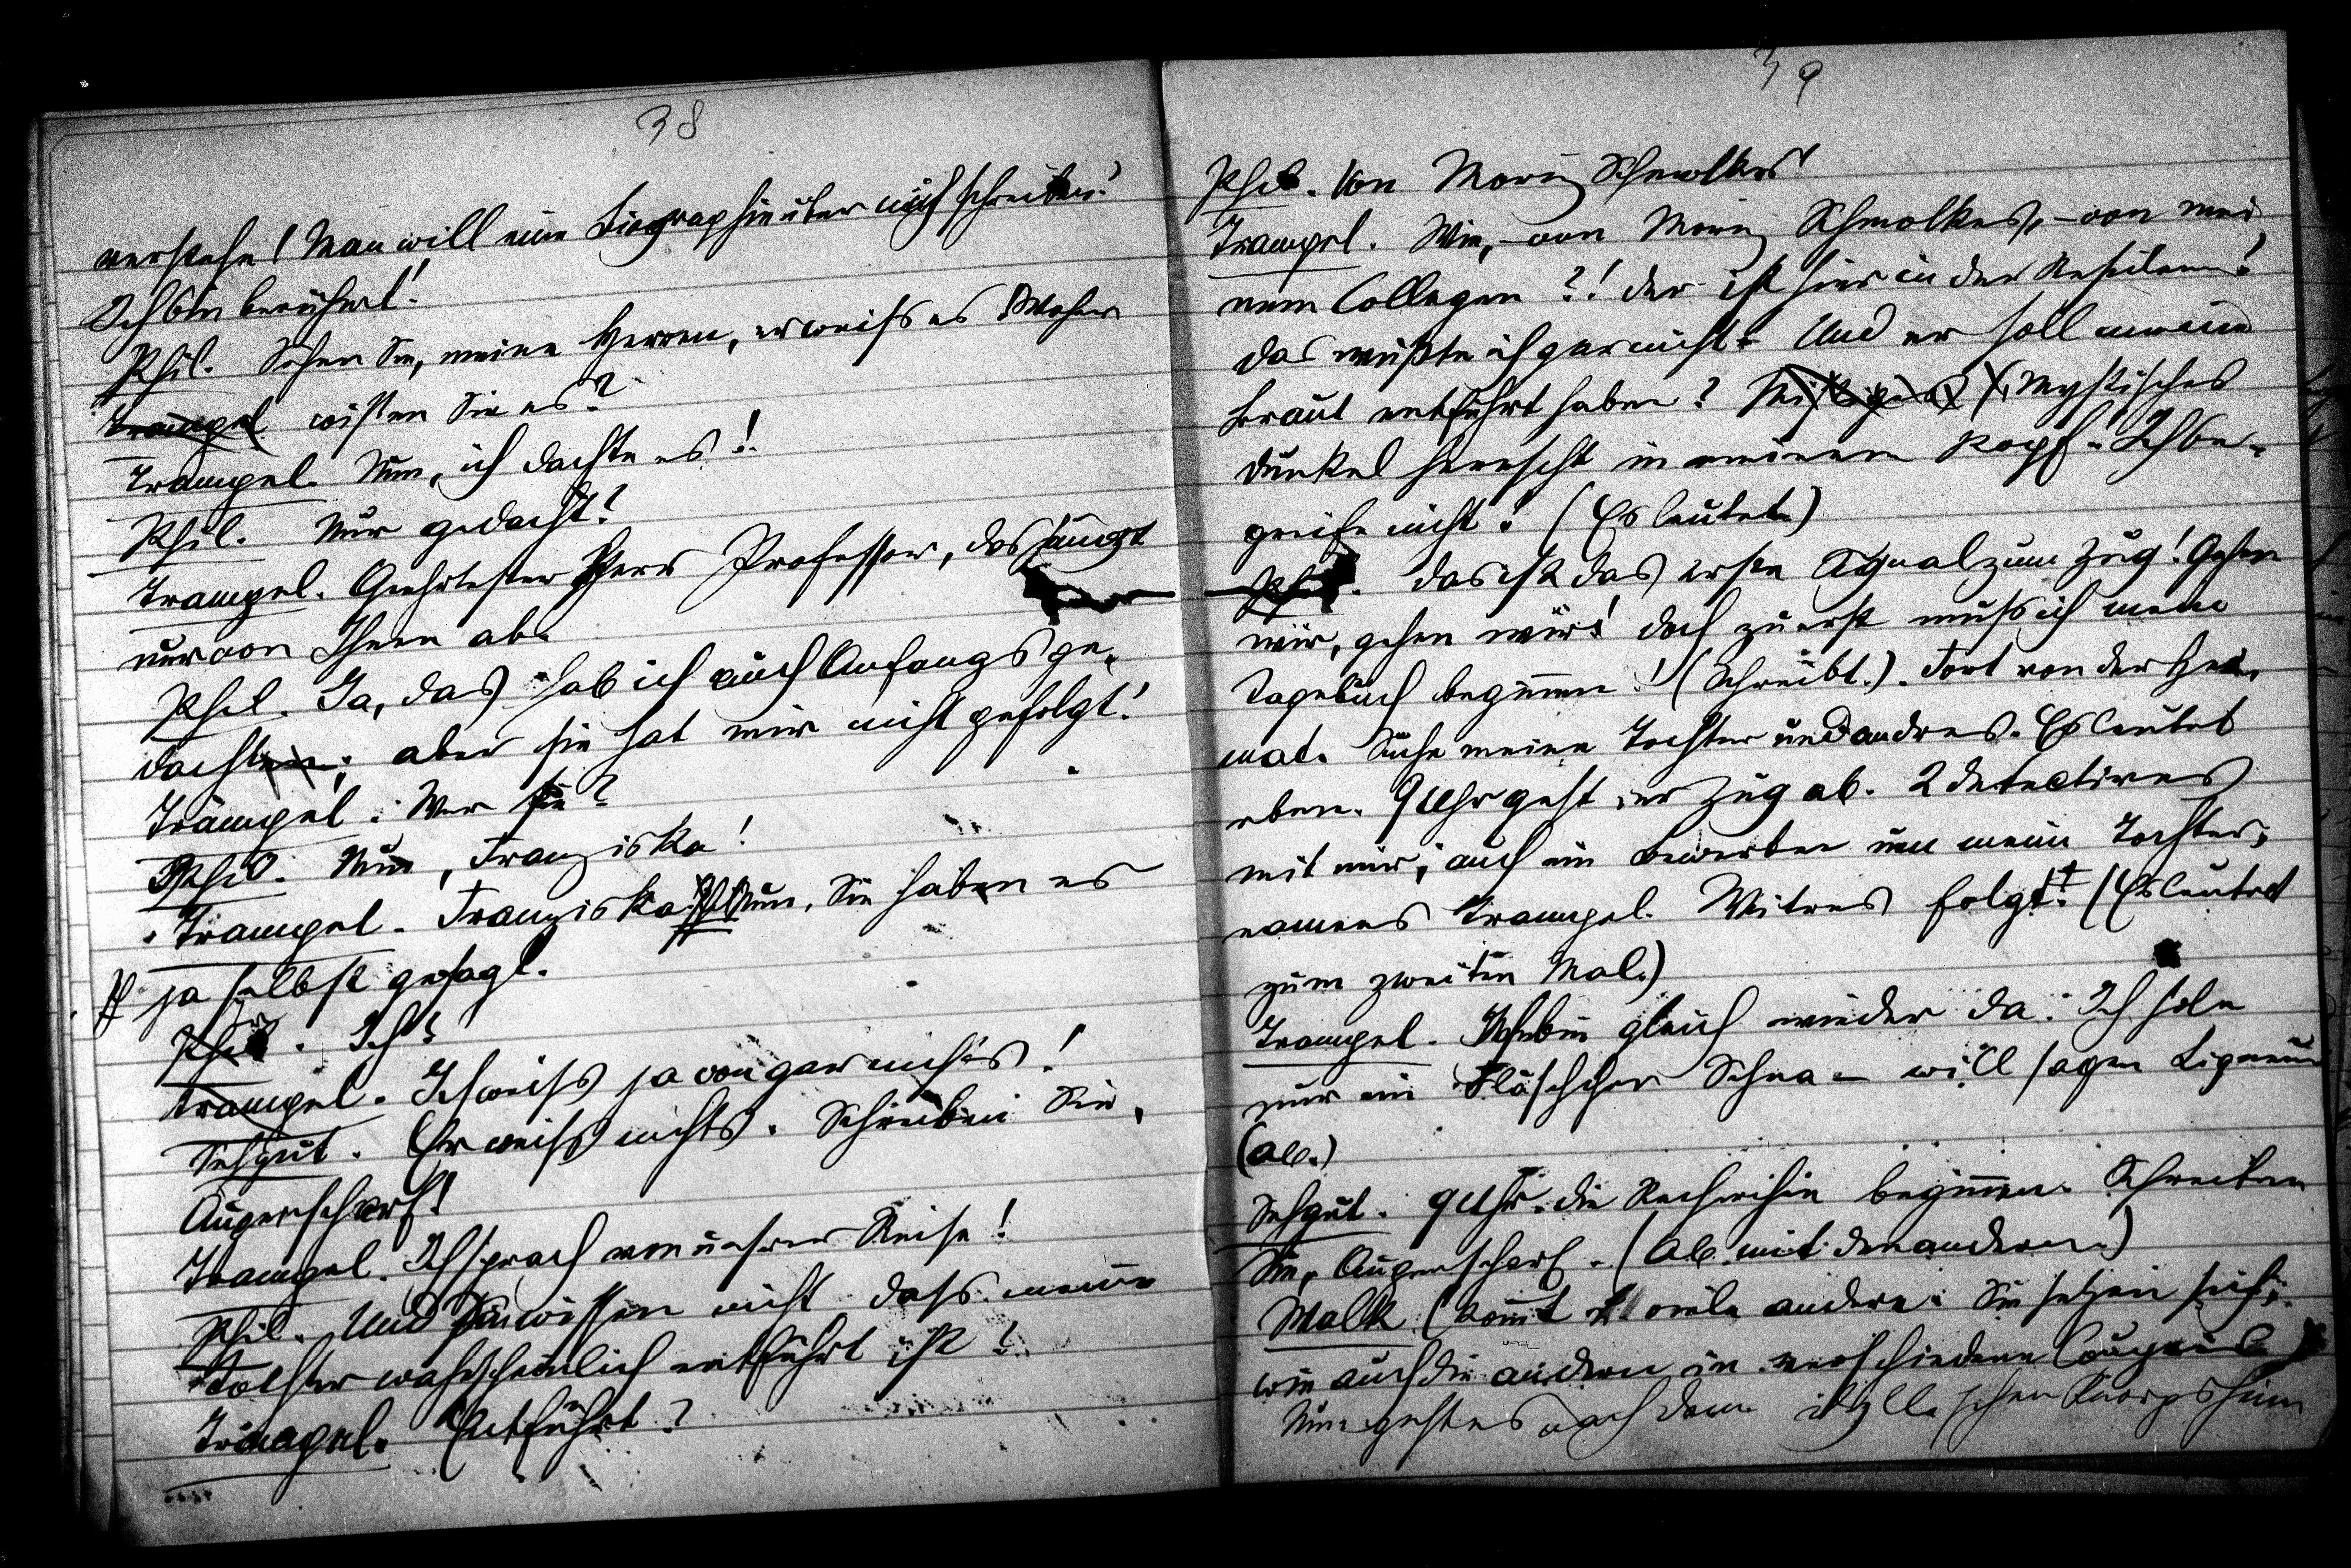 38
verstehe! Man will eine Biographie über mich schreiben!
Ich bin berühmt!
Phil. Sehen Sie, meine Herren, er weiss es! Woher
Trampel wissen Sie es?
Trampel. Nun, ich dachte es!
Phil. Nur gedacht?
Trampel. Geehrtester Herr Professor, das hängt
nur von Ihnen ab.
Phil. Ja, das hab ich auch Anfangs ge-
dacht; aber sie hat mir nicht gefolgt!
Trampel. Wer sie?
Phil. Nun, Franziska!
Trampel. Franziska? Nun, Sie haben es
ja selbst gesagt.
Phil. Ich?
Trampel. Ich weiss ja von gar nichts!
Sehgut. Er weiss nichts. Schreiben Sie,
Augenscharf!
Trampel. Ich sprach von unsrer Reise!
Phil. Und Sie wissen nicht dass meine
Tochter wahrscheinlich entführt ist?
Trampel. Entführt?
39
Phil. Von Moriz Schmolkes!
Trampel. Wie, - von Moriz Schmolkes, - von mei-
nem Collegen?! Der ist hier in der Residenz?
Das wußte ich gar nicht. Und er soll meine
Braut entführt haben? Mystisches
Dunkel herrscht in meinem Kopf. Ich be-
greife nicht! (Es leutet.)
Phil. Das ist das erste Signal zum Zug! Gehen
wir, gehen wir! Doch zuerst muss ich mein
Tagebuch beginnen! (Schreibt.). Fort von der Hei-
mat. Suche meine Tochter und andres. Es leutet
eben. 9 Uhr geht der Zug ab. 2 Detectives
mit mir; auch ein Bewerber um meine Tochter,
namens Trampel. Witres folgt! (Es leutet
zum zweiten Mal.)
Trampel. Ich bin gleich wieder da. Ich hole
nur ein Fläschchen Schna- will sagen Ligneur
(Ab.)
Sehgut. 9 Uhr. die beginnen. Schreiben
Sie, Augenscharf. (Ab mit den andern.)
Malk (kommt viele andere. Sie setzen sich,
wie auch die andern in verschiedene Coupeés.)
Nun geht es nach dem idyllischen Knorpsheim